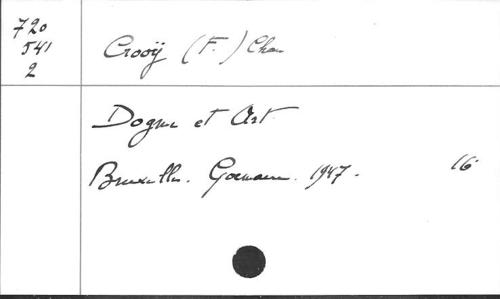 720
541
2
Crooÿ (F.) Chan
Dogme et Art.
Bruxelles. Goemaere. 1947. 16°